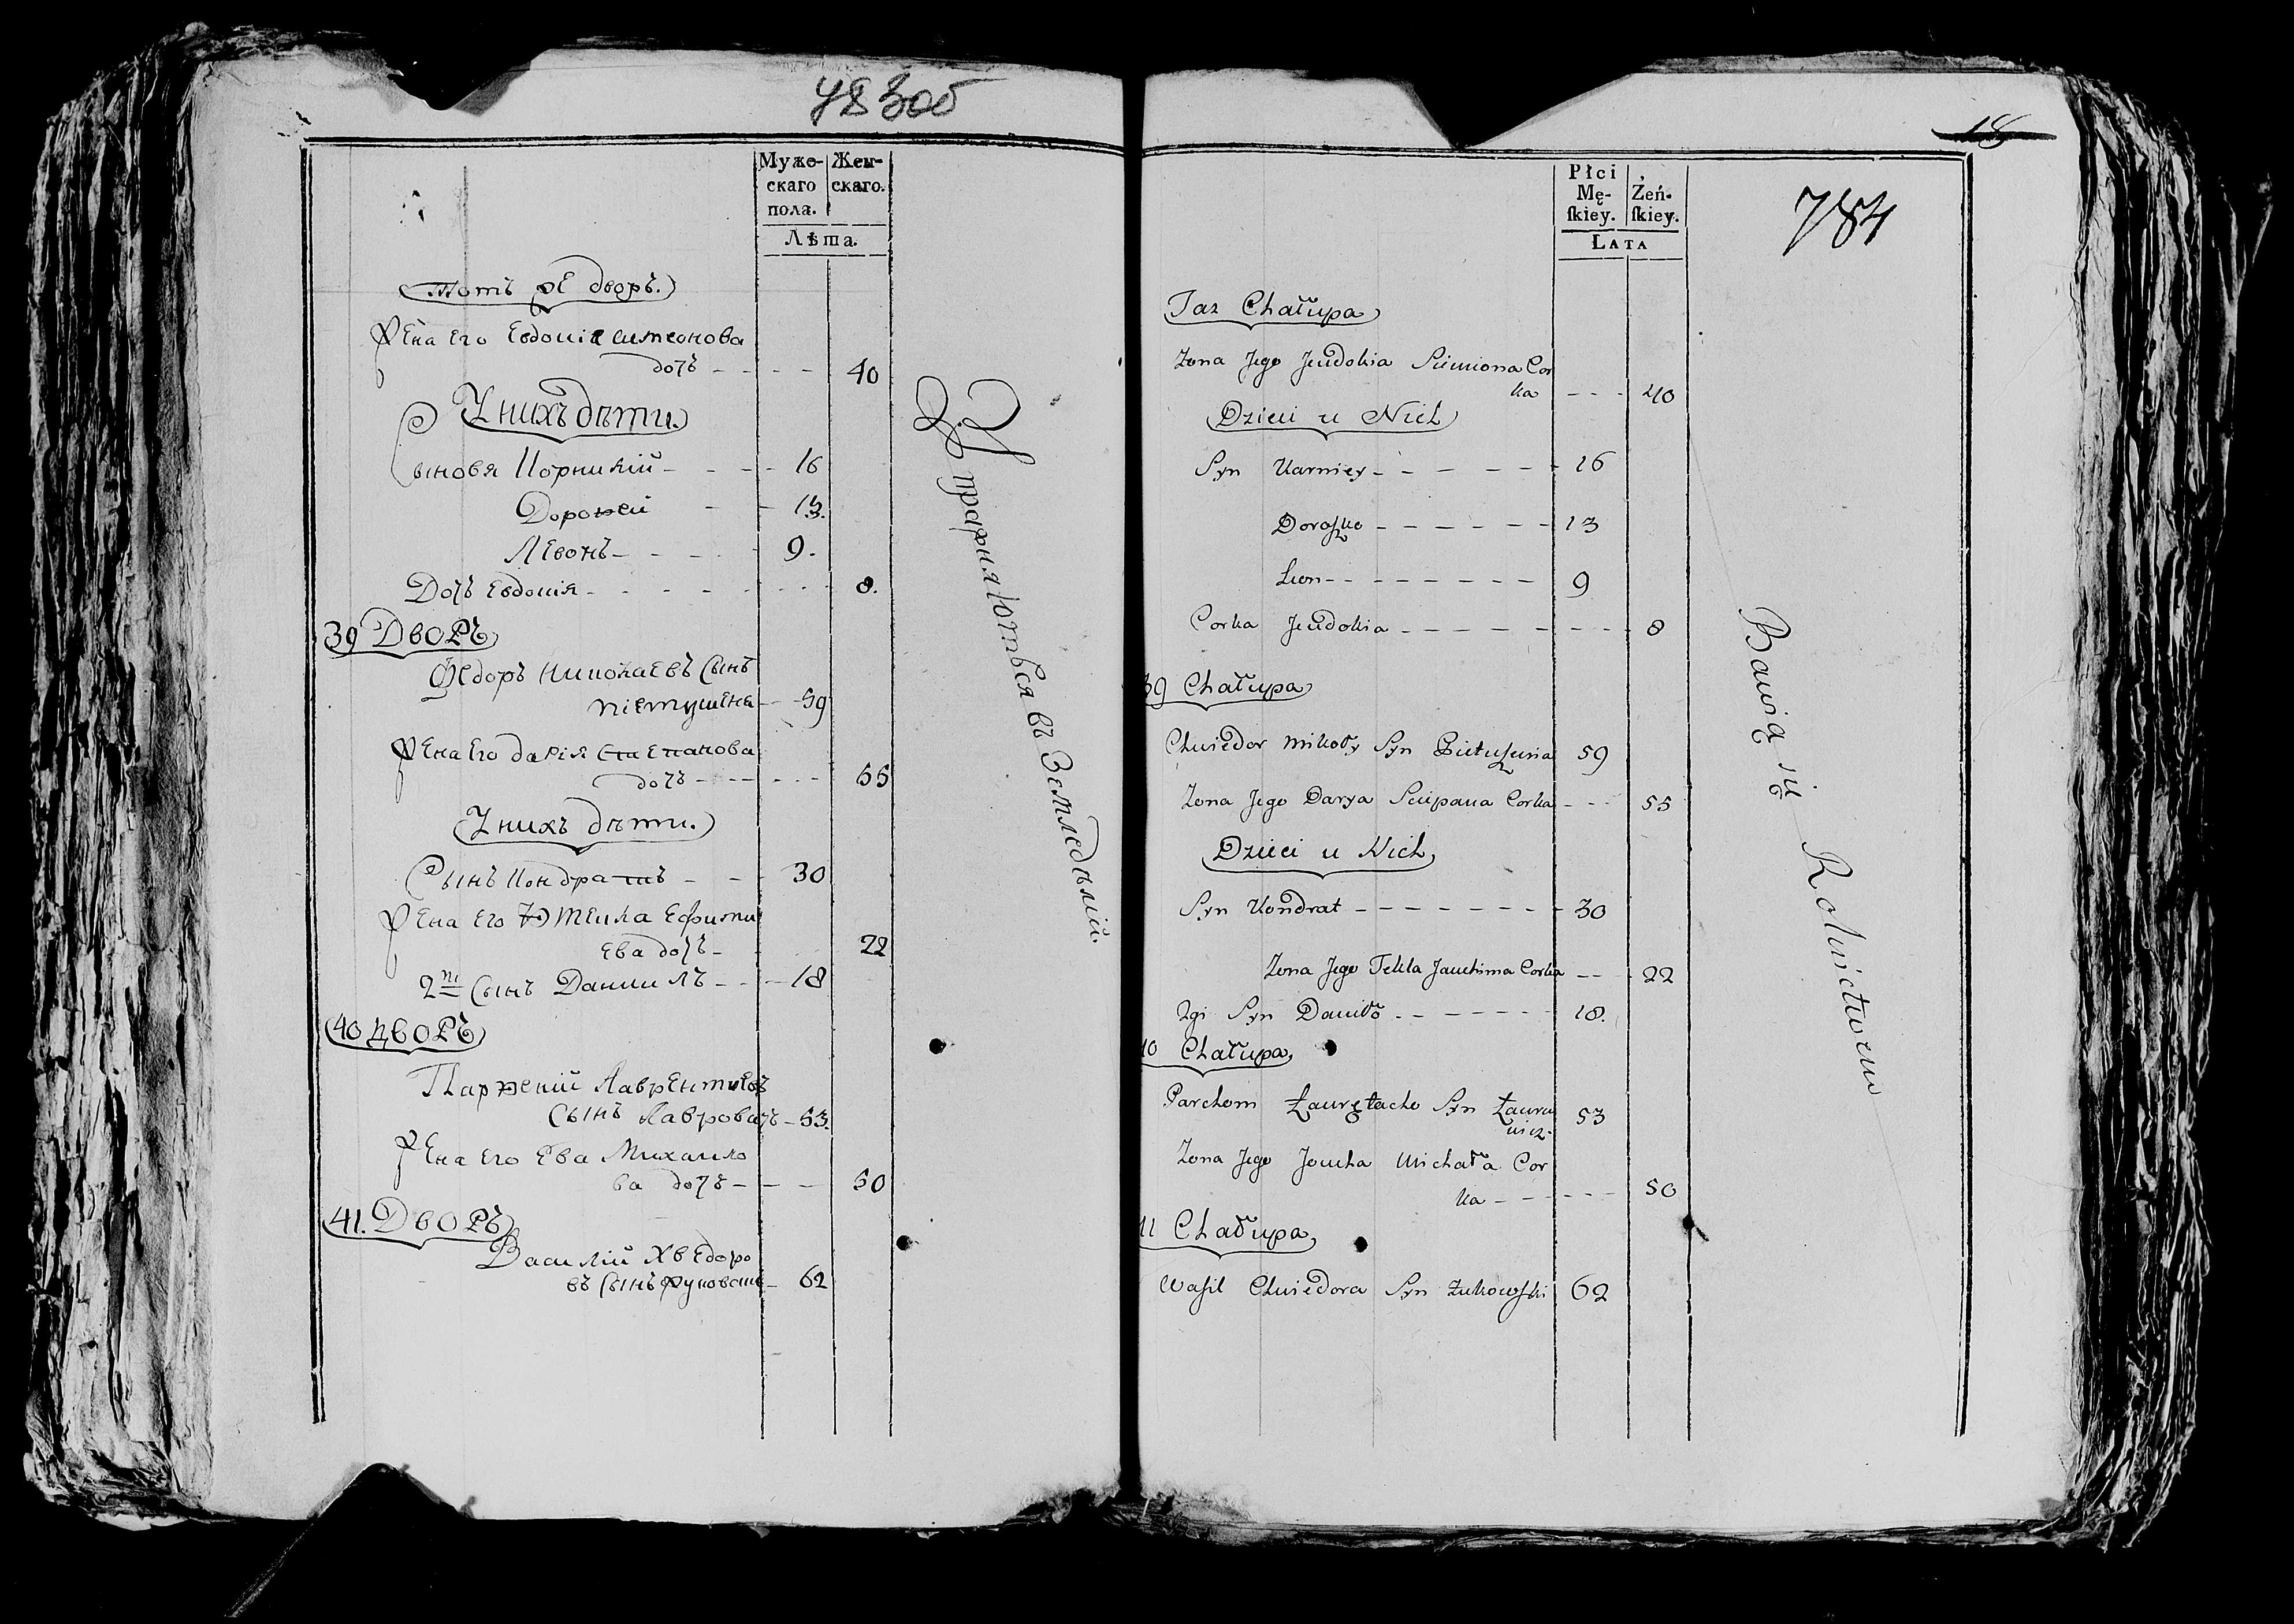 783об
Муже- Жен-
скаго скаго.
пола.
Лѣта.
тотъ же дворъ.
Жена его Евдокiя симеонова
дочь - - - - 40
У нихъ дѣти.
Сыновя Корникiй - - - - 16
Дорофей - - 13.
Левонъ - - - - 9.
Дочь Евдокiя - - - - - - - 8.
39 Дворъ
Федоръ николаевъ Сынъ
- - 59
Жена Его дарiя Степанова
дочь - - - - - - 55
У нихъ дѣти.
Сынъ Кондратъ - - - 30
Жена Его
Ева дочь - 22
2й Сынъ Данiилъ - - - 18
40 дворъ
Парфенiй Лаврентиевъ
Сынъ - 53.
Жена Его Ева Михаило
ва дочь - - - 50
41. Дворъ
Василiй Хведоро
въ Сынъ - 62
въ Земледѣлiй.
18
784
Płci
Mę- Żeń-
ſkiey. ſkiey.
LATA
Taz Chałupa
Zona Jego Jeudokia Siemiona Cor
ka - - - 40
Dzieci u Nich
Syn Karniey - - - - - - 16
Doroszko - - - - - - 13
Leon - - - - - - - - 9
Corka Jeudokia - - - - - - - - - 8
39 Chałupa
Chwiedor Mikoły Syn Pietuszenia 59
Zona Jego Darya Sciepana Corka - - - 55
Dzieci u Nich
Syn Kondrat - - - - - - - - 30
Zona Jego Tekla Jauchima Corka - - - 22
2gi Syn Daniło - - - - - - - 18.
40 Chałupa
Parchom Syn Ławru
wicz. 53
Zona Jego Jewcha Michała Cor
ka - - - - - - 50
41 Chałupa
Wasil Chwiedora Syn Żukowski 62
Bawią się Rolnictwem